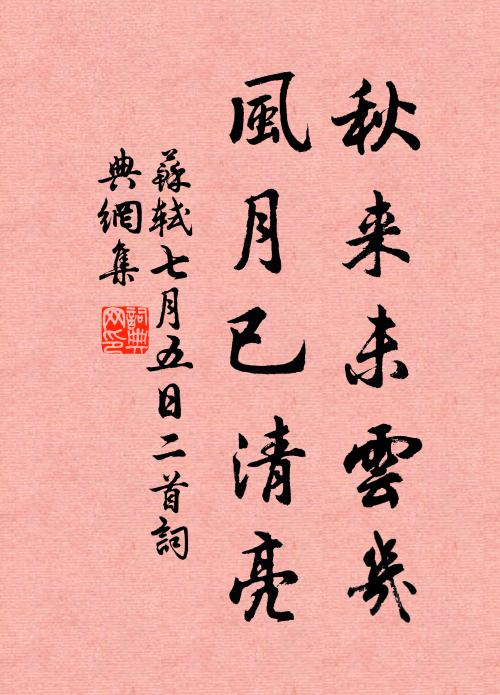 秋来未雲幾
風月已清亮
蘇軾七月五日二首詞
典網集
詞典网印